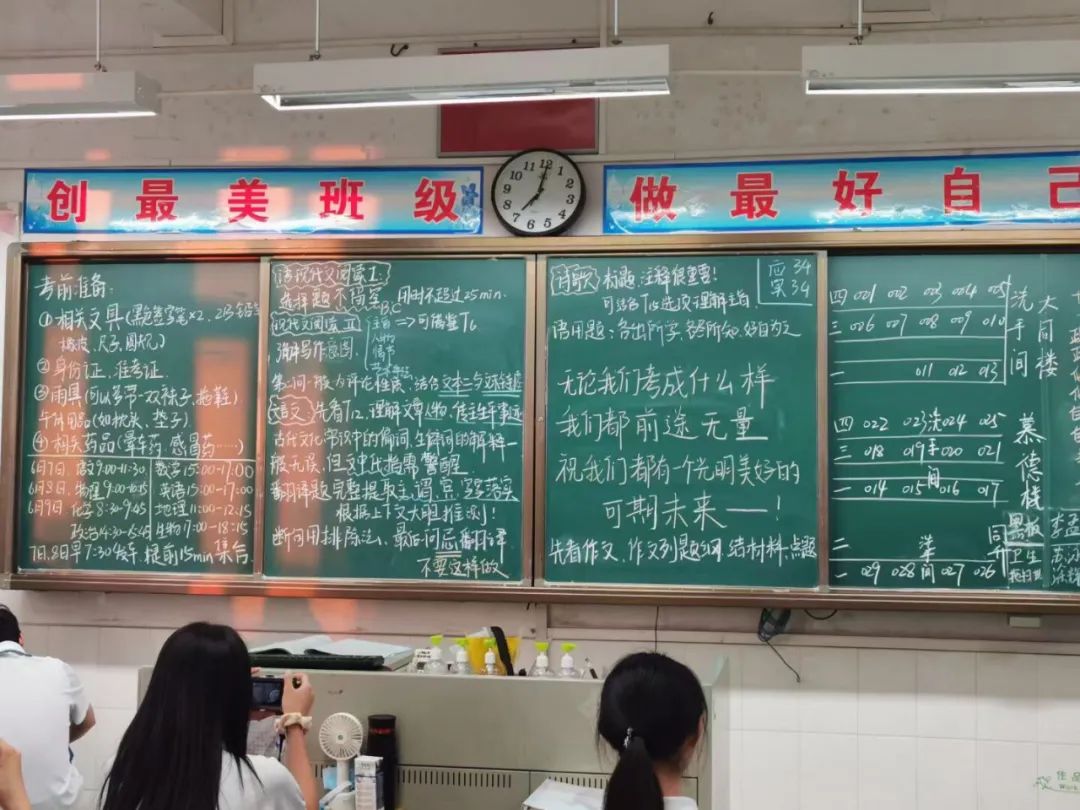 创最美班级
做最好自己
考前准备:
①相关文具(黑色签字笔×2、2B铅笔
橡皮、尺子、圆规)
②身份证、准考证
③雨具(可以多带一双袜子、拖鞋)
午休用品(如枕头、垫子)
④相关药品(晕车药、感冒药……)
6月7日 语文9:00-11:30 数学15:00-17:00
6月8日 物理9:00-10:15 英语15:00-17:00
6月9日 化学8:30-9:45 地理11:00-12:15
政治14:30-15:45 生物17:00-18:15
7日,8日早7:30发车,提前15min集合
读现代文阅读I:
选择题不隔空 用时不超过25min.
现代文阅读II
B.C
主旨
人物
情节
=>可借鉴T6
意图
第二问一般为评论性质,结合文本二与
文言文 先看T12,理解文章人物,
古代文化常识中的
般无误,但文中代指需警醒
翻译题完整提取主、谓、宾,
根据上下文大胆推测!
断句用排除法、最后
不要这样做
诗歌 标题、注释很重要!
可结合T15选项理解主旨
应34
实34
语用题:各出所学,各尽所知,
无论我们考成什么样
我们都前途无量
祝我们都有一个光明美好的
可期未来——!
先看作文,作文列题纲,结材料,点题
四 001 002 003 004 005
三 006 007 008 009 010
一 011 012 013
洗手间
大同楼
四 022 023 洗 024 025
三 018 019 手 020 021
一 014 015 间 016 017
慕德楼
二 洗
一 029 028 间 027 026
黑板
卫生